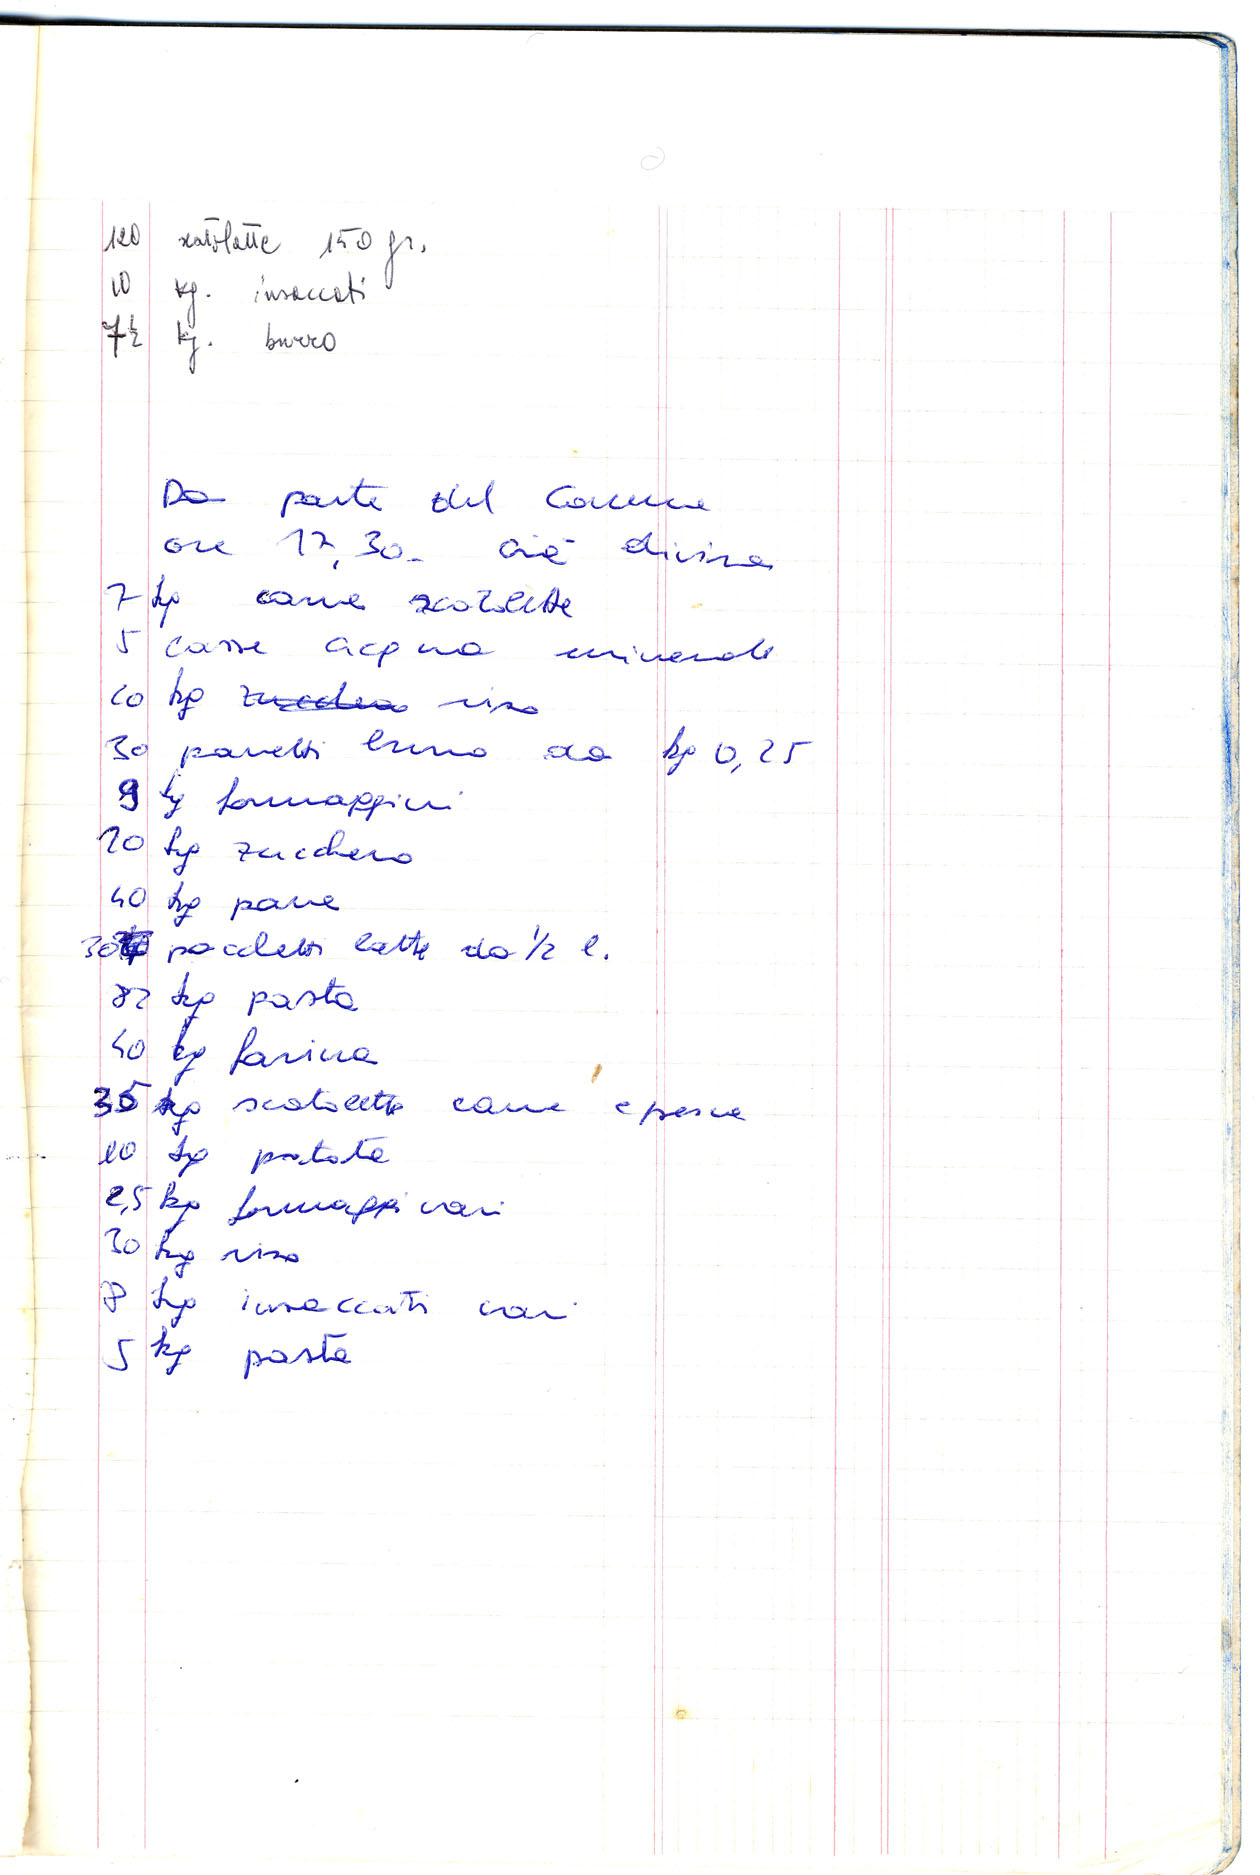 120 scatolette 150 gr.
10 kg. insaccati
7½ kg. burro
Da parte del Comune
ore 17,30 - già divisa
7 kg carne scatolette
5 casse acqua minerale
10 kg riso
30 panetti burro da kg 0,25
9 kg formaggini
20 kg zucchero
40 kg pane
30 pacchetti latte da 1/2 l.
82 kg pasta
40 kg farina
35 kg scatolette carne e pesce
10 kg patate
2,5 kg formaggi vari
30 kg riso
8 kg insaccati vari
5 kg pasta